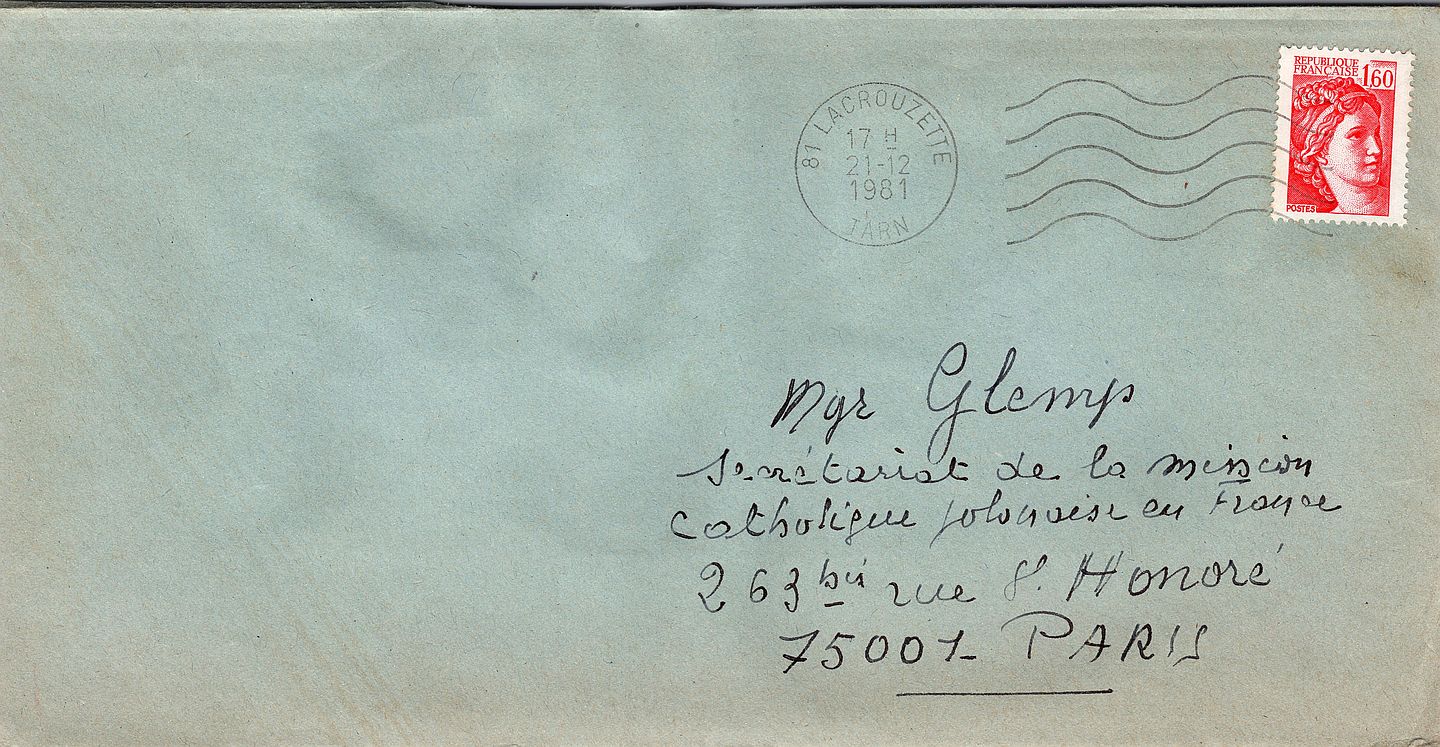 REPUBLIQUE
FRANÇAISE 1,60
POSTES
81 LACROUZETTE
17 H
21-12
1981
TARN
Mgr Glemp
Secrétariat de la mission
Catholique polonaise en France
263 bis rue St Honoré
75001 PARIS